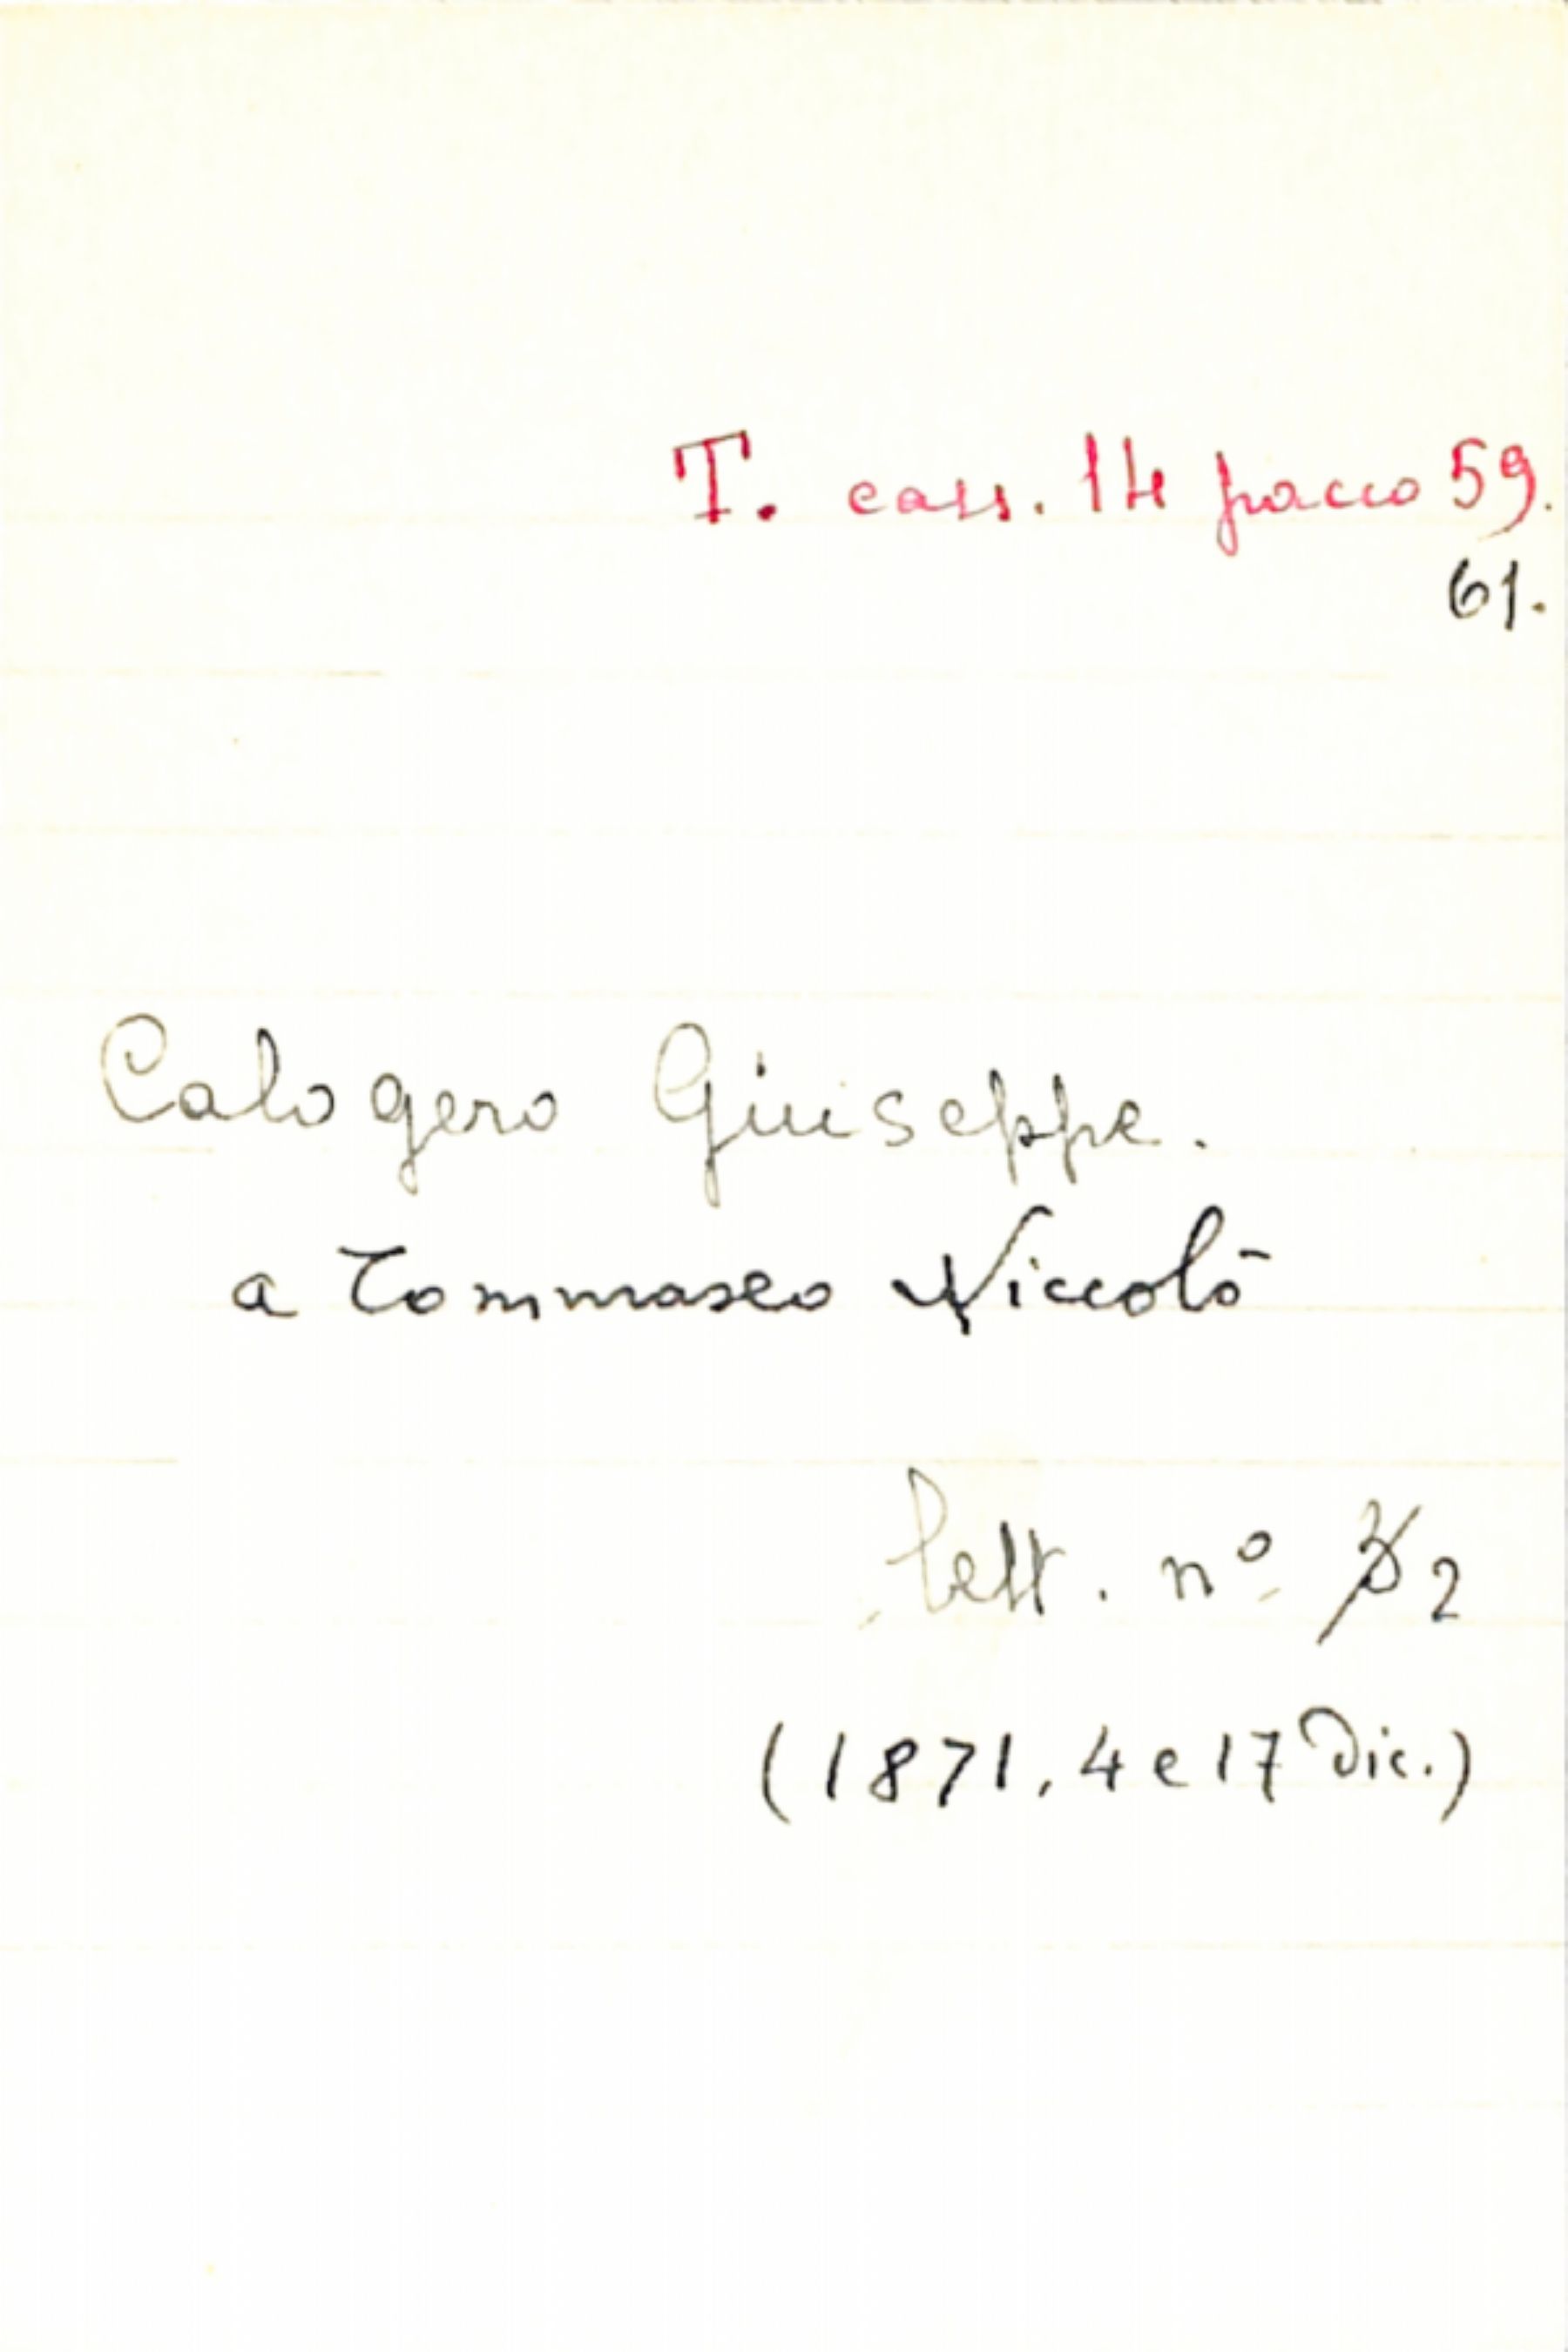 T. cass. 14 pacco 59.
61.
Calogero Giuseppe.
a Tommaseo Niccolò
lett. nº 3 2
(1871, 4 e 17 Dic.)